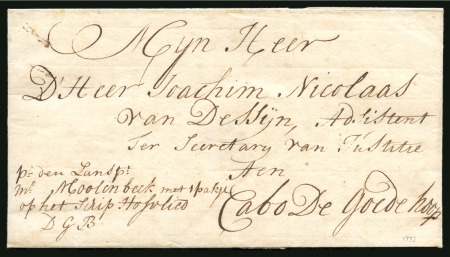 Myn Heer
D'Heer Joachim Nicolaas
van Dessyn, Adsistent
Ter Secretary van Justitie
Aen
Cabo De Goede hoop
pr den Lanspt
Mr Moolenbeek met 1 pakje
op het Schip Hofvlied
D G B